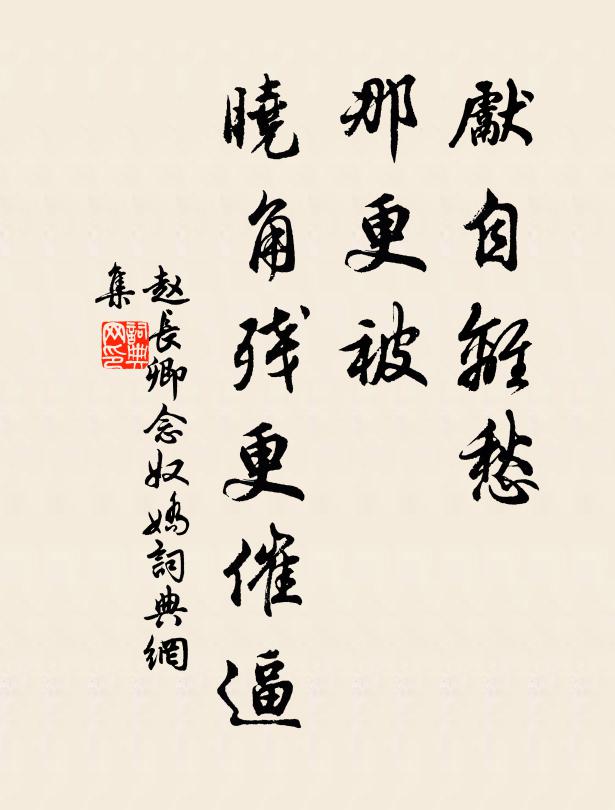 獻自離愁
那更被
曉角残更催逼
赵長卿念奴嬌詞典網
集
詞典
网印